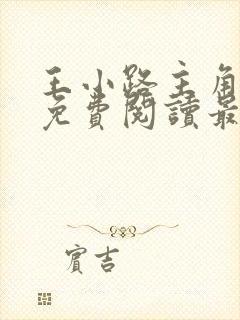 王小路主角
免費閱讀最
賓吉